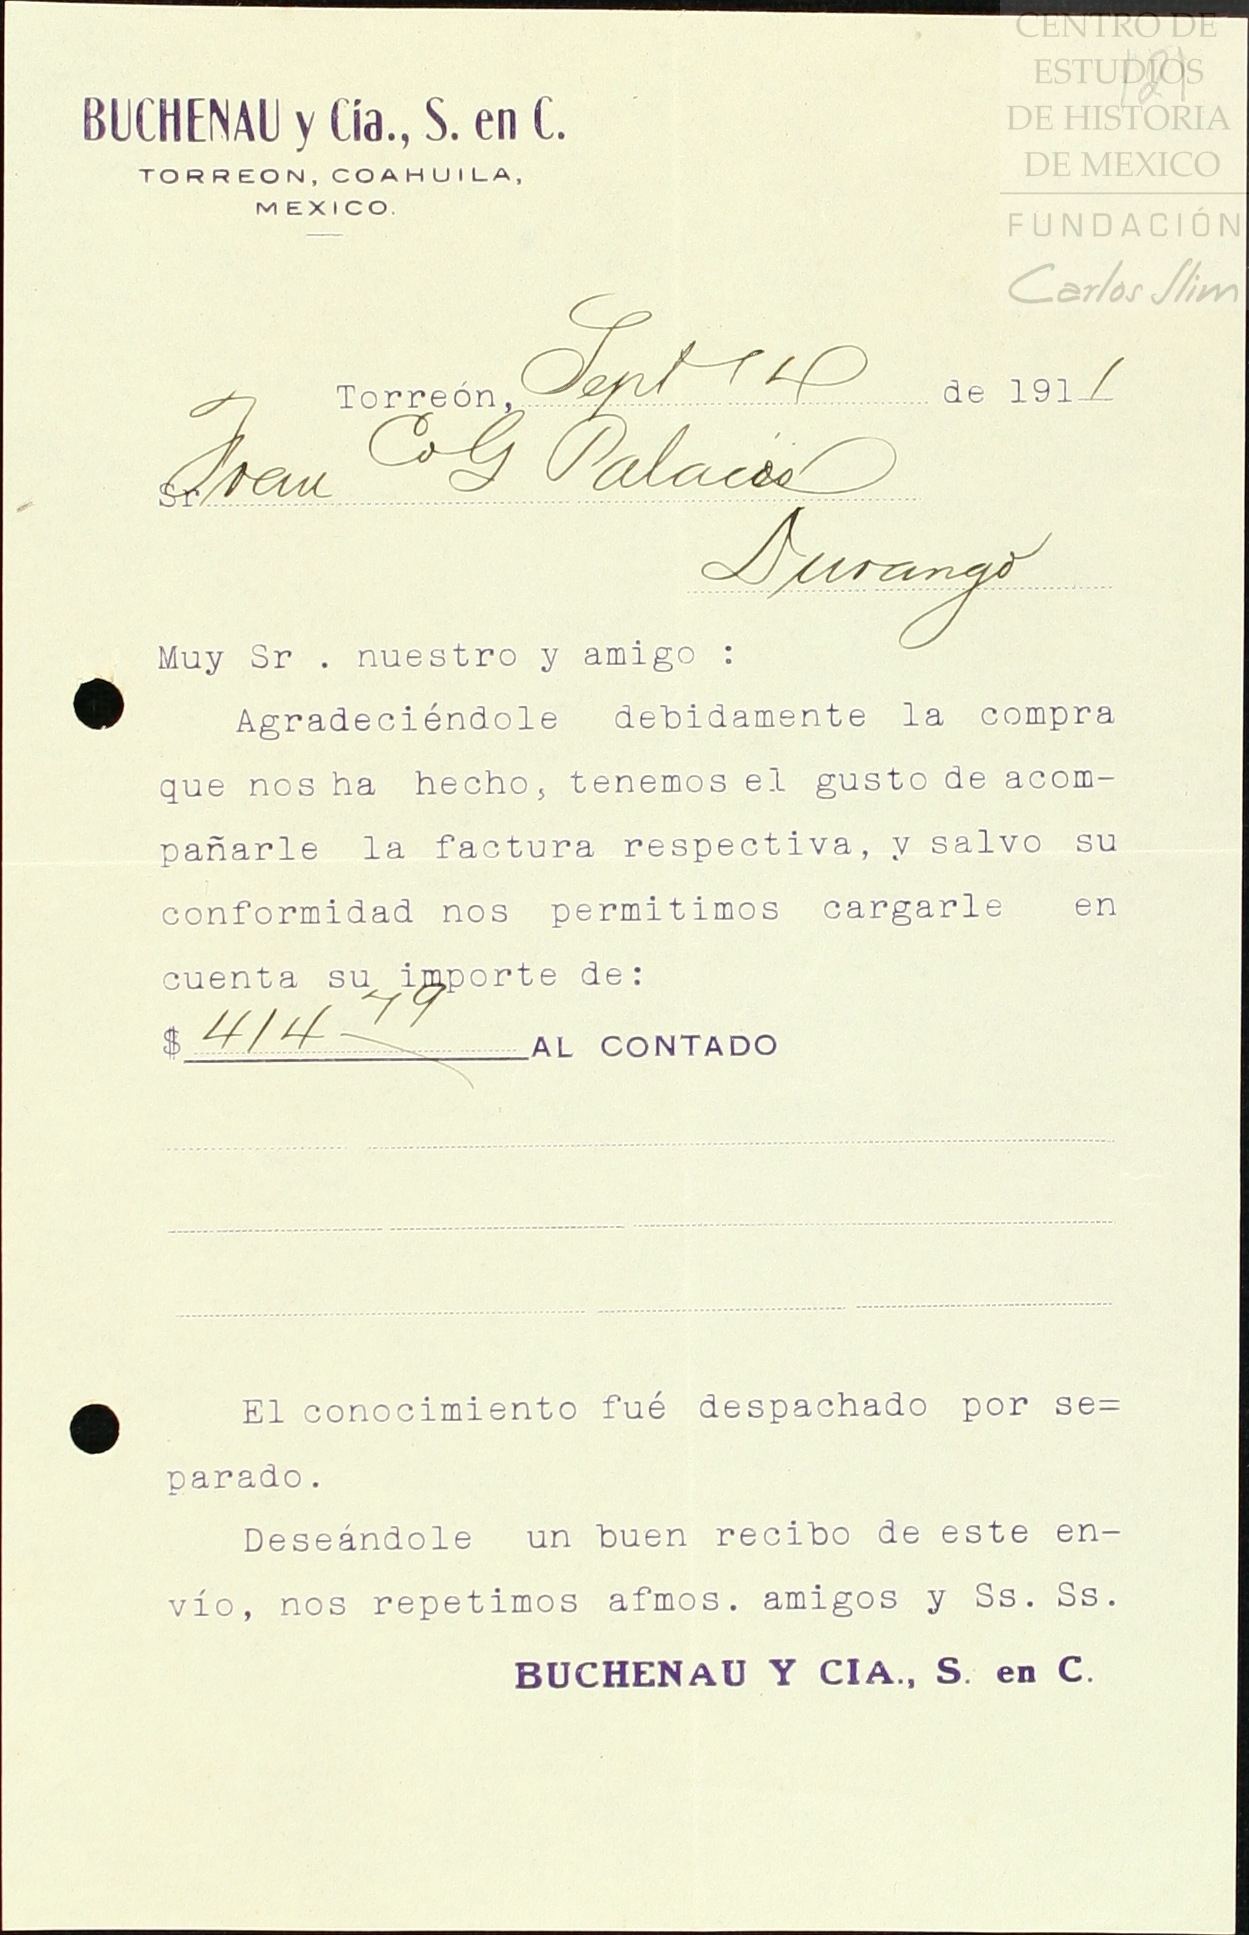 CENTRO DE
ESTUDIOS
DE HISTORIA
DE MEXICO
FUNDACIÓN
Carlos Slim
121
BUCHENAU y Cía., S. en C.
TORREON, COAHUILA,
MEXICO.
Torreón, Sept 14 de 1911
Sr Fran Co G Palacio
Durango
Muy Sr . nuestro y amigo :
Agradeciéndole debidamente la compra
que nos ha hecho, tenemos el gusto de acom-
pañarle la factura respectiva, y salvo su
conformidad nos permitimos cargarle en
cuenta su importe de:
$ 414 79 AL CONTADO
El conocimiento fué despachado por se=
parado.
Deseándole un buen recibo de este en-
vío, nos repetimos afmos. amigos y Ss. Ss.
BUCHENAU Y CIA., S. en C.